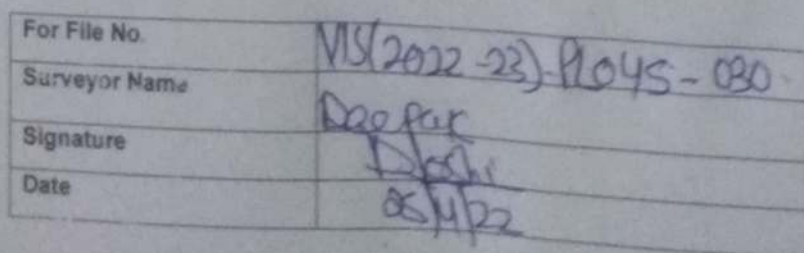 For File No. VIS(2022-23)-PL045-030
Surveyor Name Deepak
Signature D Joshi
Date 05/4/22